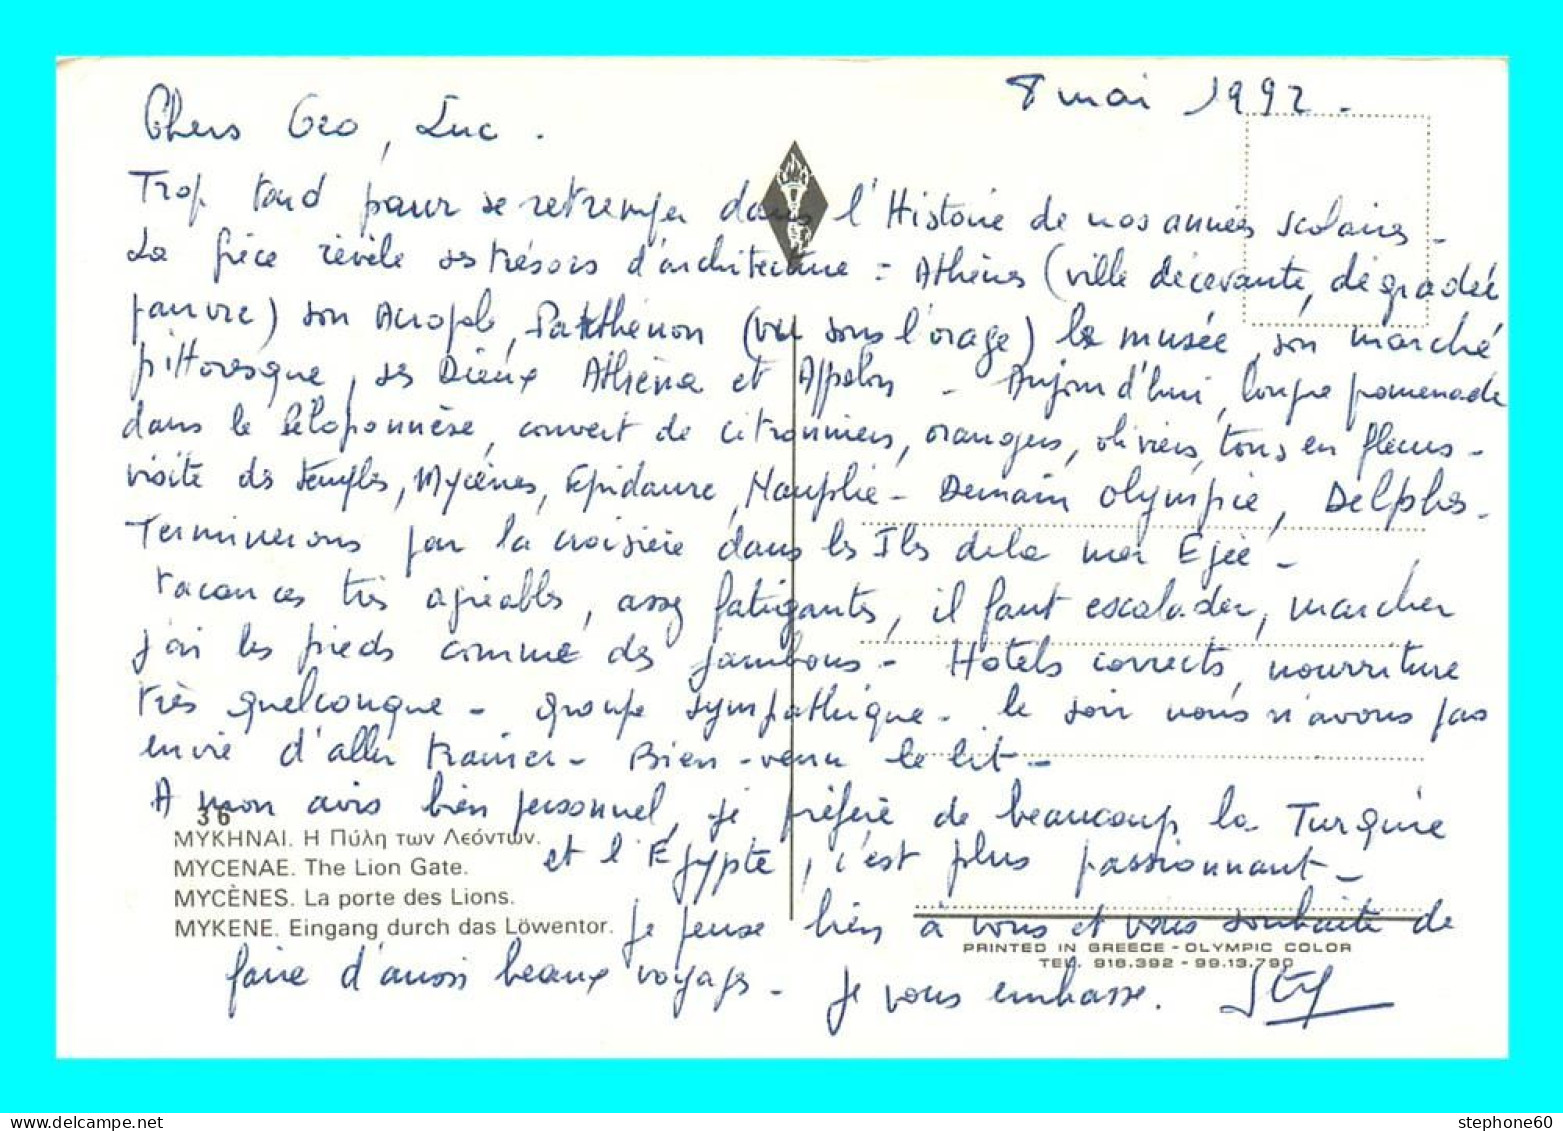 8 mai 1992 -
Chers Geo, Luc.
Trop tard pour se retremper dans l'Histoire de nos années scolaires -
La Grèce révèle ses trésors d'architecture = Athènes (ville décevante, dégradée
pauvre) son Acropole, Parthénon (vu sous l'orage) le musée, son marché
pittoresque, ses Dieux Athéna et Appolon - Aujourd'hui, longue promenade
dans le Péloponnèse, couvert de citronniers, orangers, oliviers, tous en fleurs -
visite des temples, Mycènes, Epidaure, Nauplie - Demain Olympie, Delphes -
Terminerons par la croisière dans les Iles de la mer Egée -
Vacances très agréables, assez fatigantes, il faut escalader, marcher
j'ai les pieds comme des jambons - Hotels corrects, nourriture
très quelconque - groupe sympathique - le soir nous n'avons pas
envie d'aller trainer - Bien-venu le lit -
A mon avis bien personnel, je préfère de beaucoup la Turquie
et l'Egypte, c'est plus passionnant -
Je pense bien à vous et vous souhaite de
faire d'aussi beaux voyages - Je vous embrasse.
36
ΜΥΚΗΝΑΙ. Η Πύλη των Λεόντων.
MYCENAE. The Lion Gate.
MYCÈNES. La porte des Lions.
MYKENE. Eingang durch das Löwentor.
PRINTED IN GREECE - OLYMPIC COLOR
TEL. 916.392 - 99.13.790
stephone60